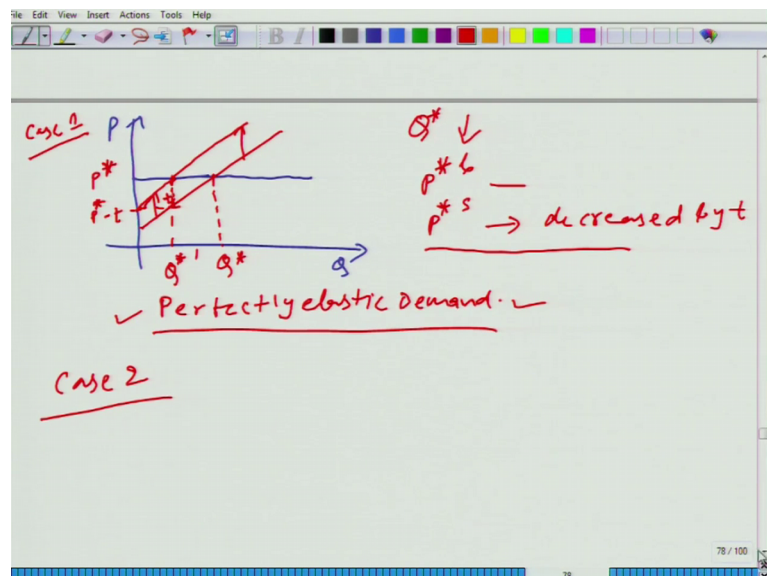 File Edit View Insert Actions Tools Help
B I
Case 1
P
P*
P*-t
t
Q*'
Q*
Q
Q* ↓
P* b —
P* s → decreased by t
✓ Perfectly elastic Demand. ✓
Case 2
78 / 100
78